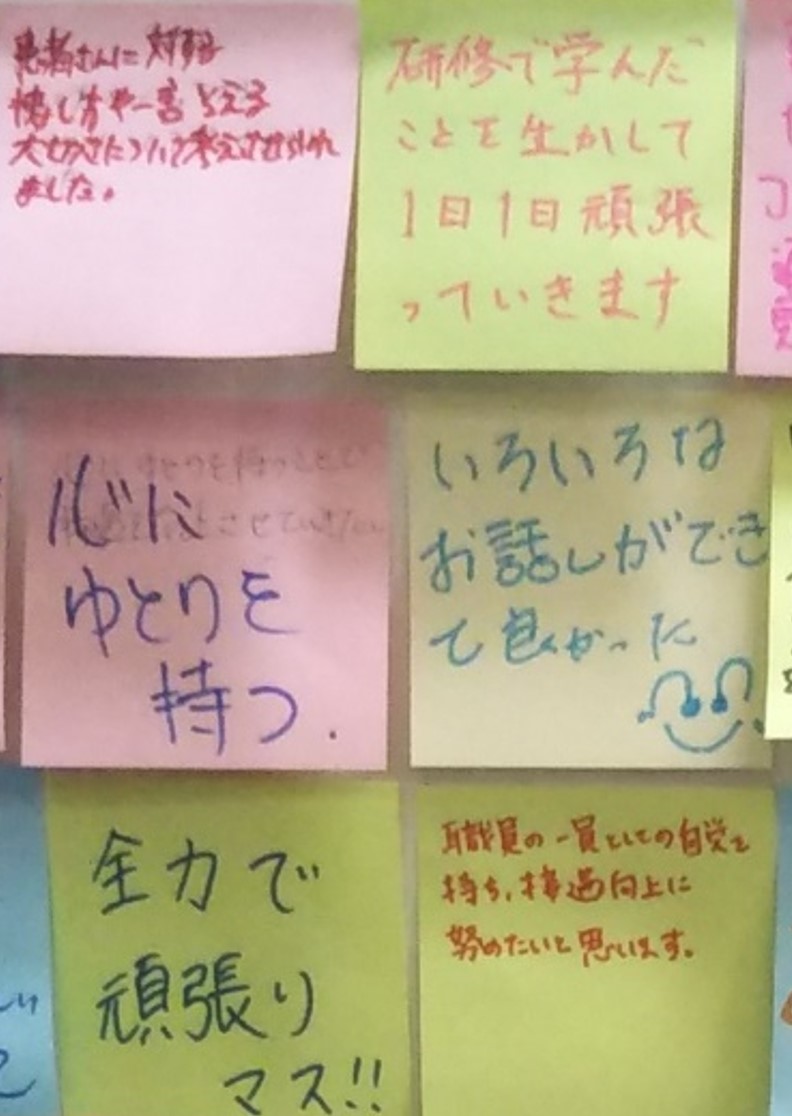 患者さんに対する
接し方や一言与える
大切さについて考えさせられ
ました。
研修で学んだ
ことを生かして
1日1日頑張
っていきます
心に
ゆとりを
持つ.
いろいろな
お話しができ
て良かった
全力で
頑張り
マス!!
職員の一員としての自覚を
持ち、接遇向上に
努めたいと思います。